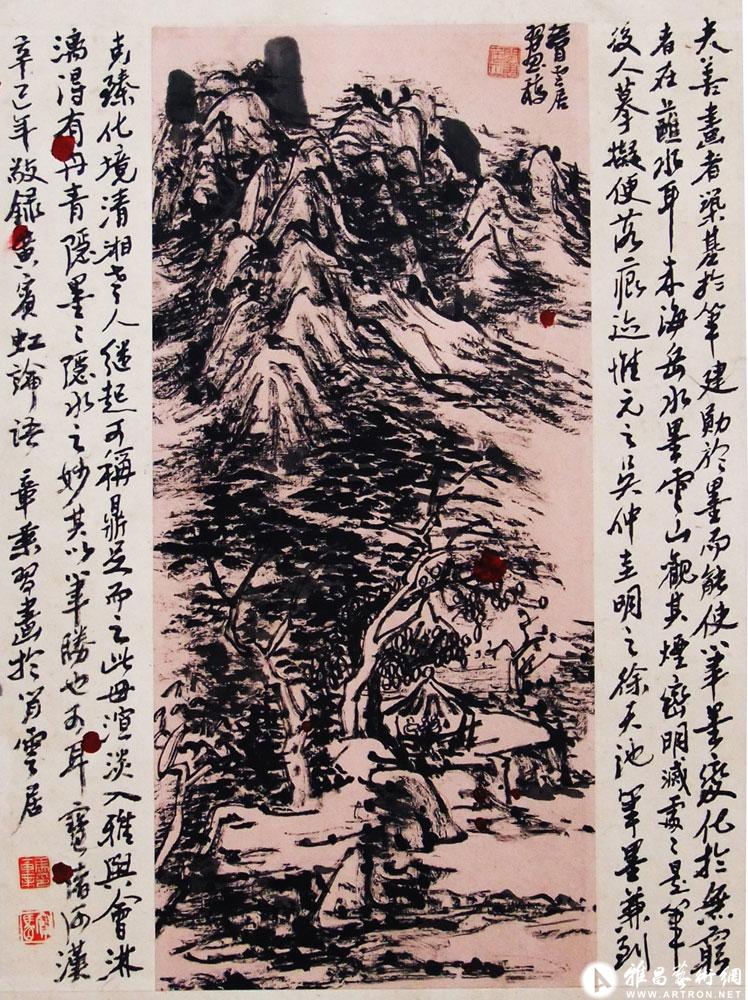 夫善畫者築基於筆建勛於墨而能使筆墨變化於無窮
者在蘸水耳米海岳水墨雲山觀其煙巒明滅處是筆
後人摹擬便落痕迹惟元之吳仲圭明之徐天池筆墨兼到
習畫稿
克臻化境清湘老人繼起可稱鼎足而之此毋渲淡入雅與會淋
漓得有丹青隱墨墨隱水之妙其以筆勝也
辛巳年敬錄黃賓虹論語 章葉習畫於賓雲居
雅昌藝術網
WWW.ARTRON.NET